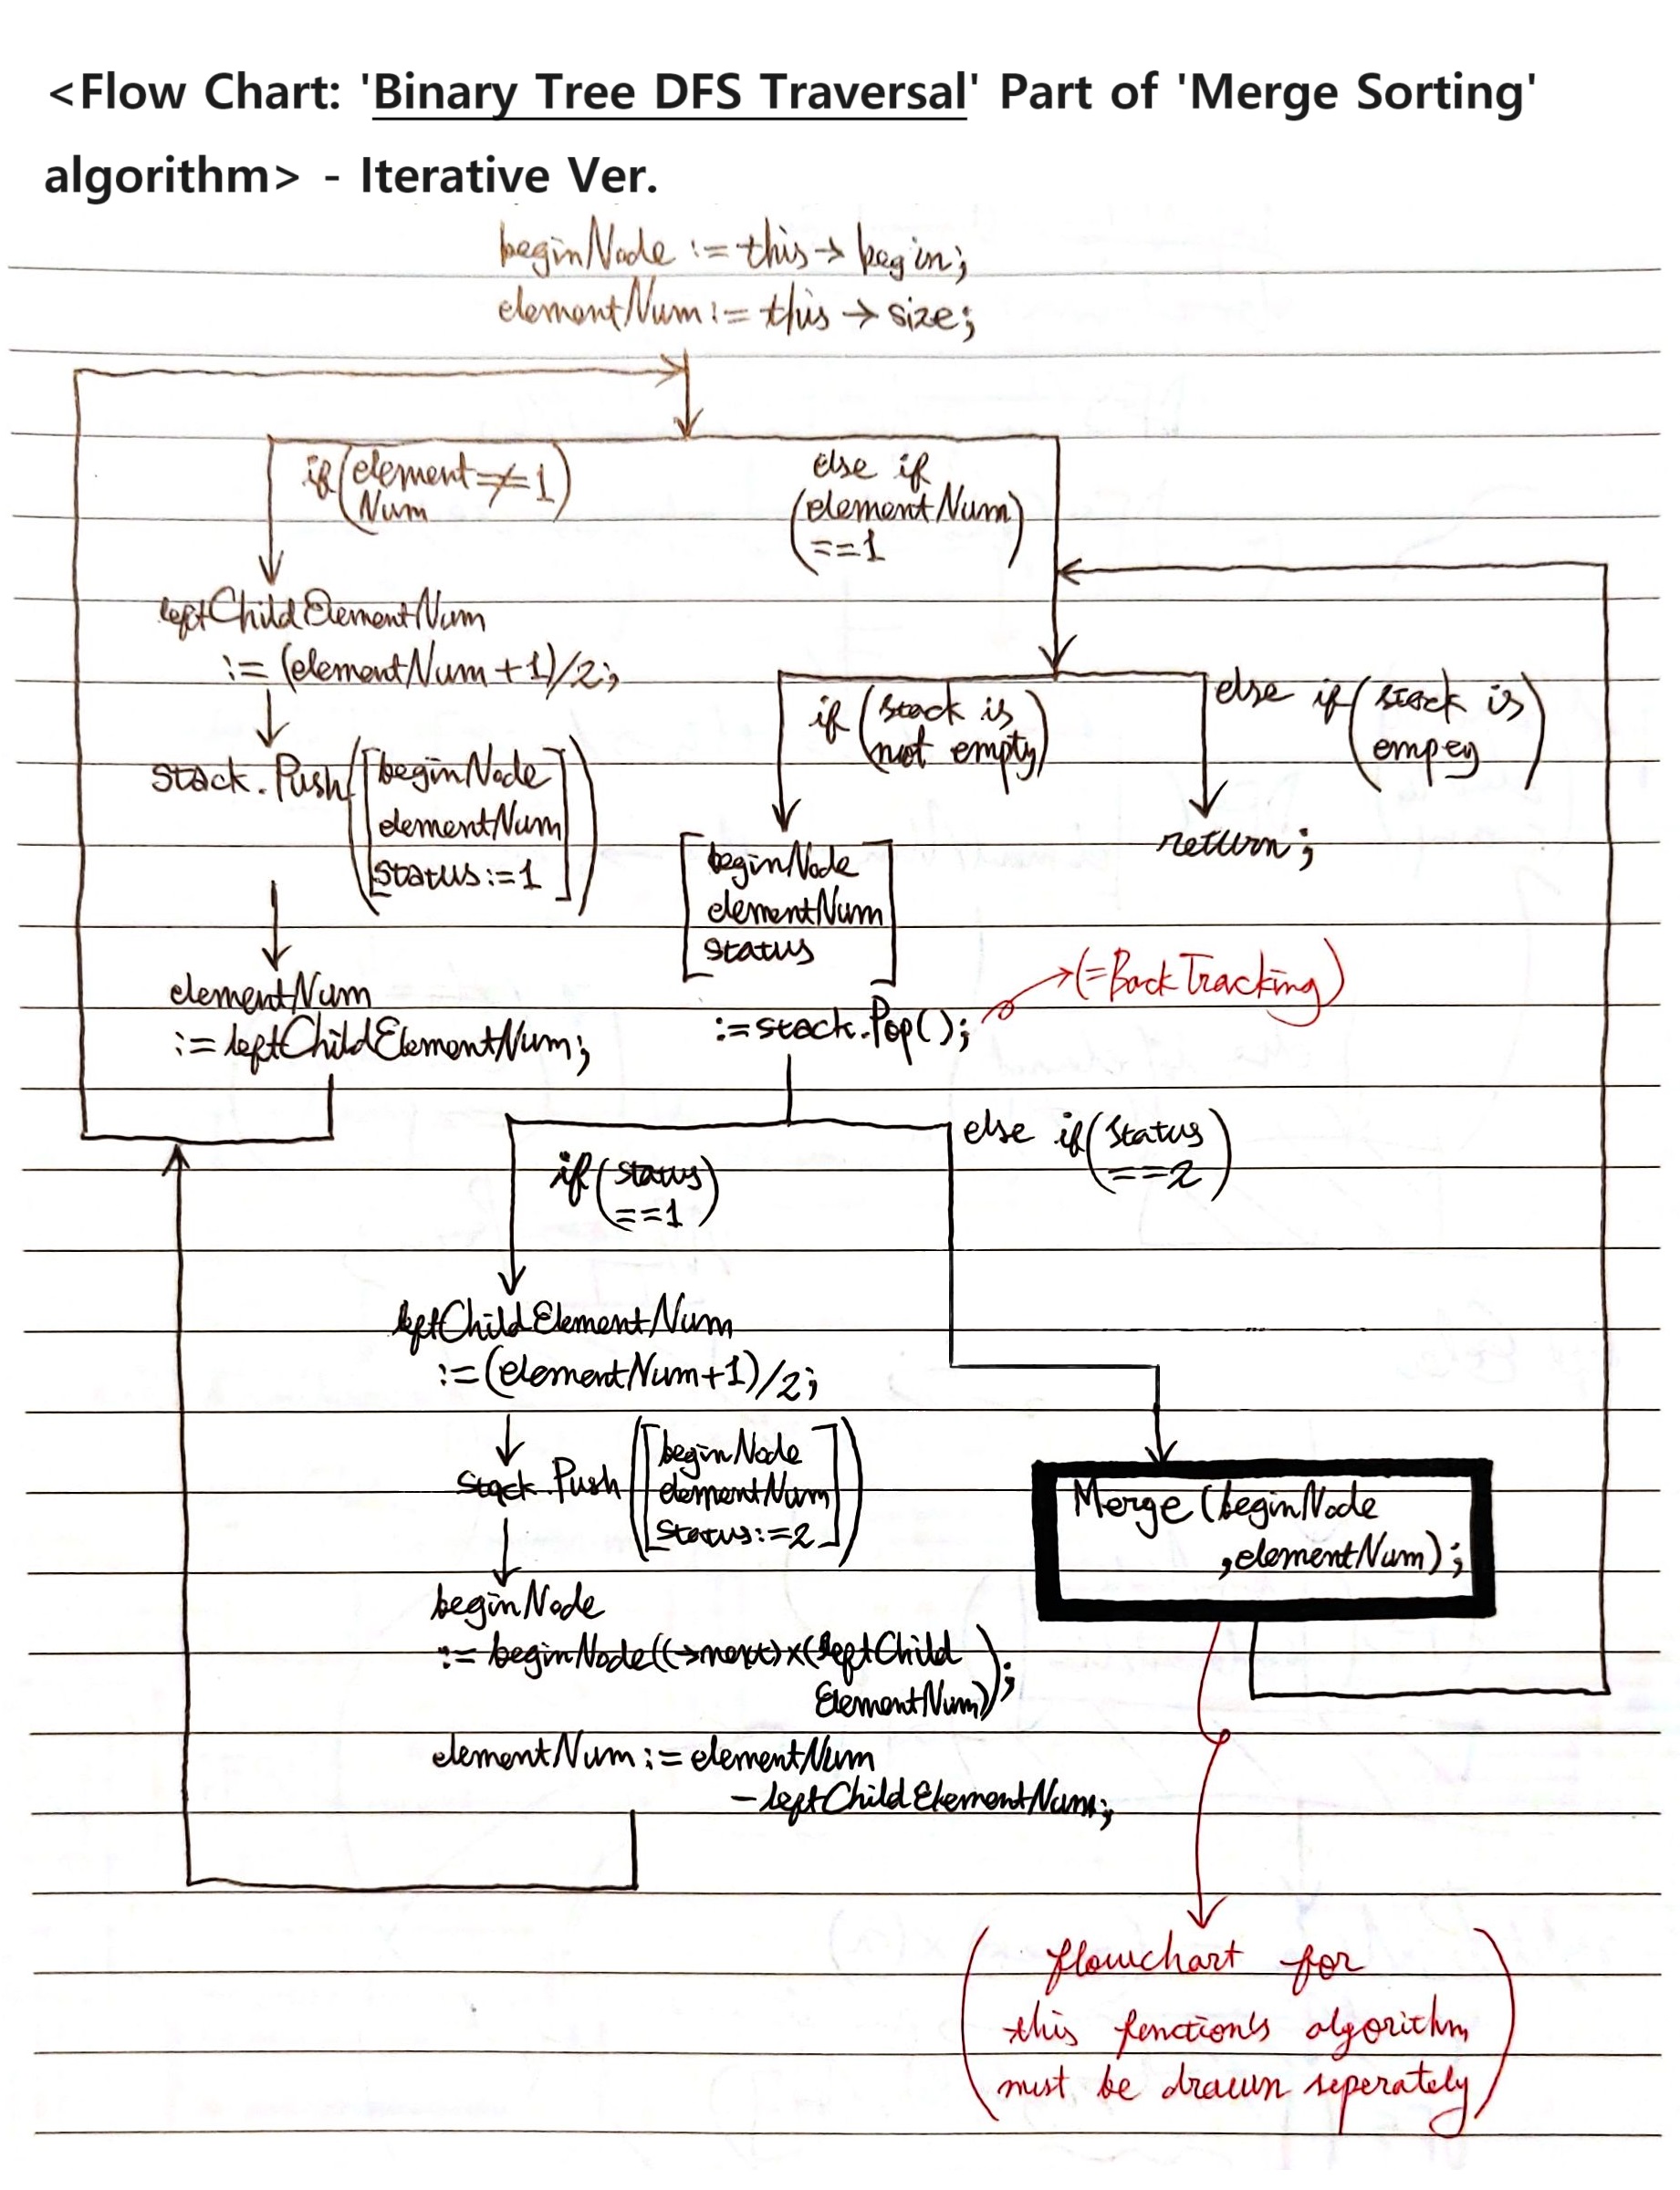 <Flow Chart: 'Binary Tree DFS Traversal' Part of 'Merge Sorting'
algorithm> - Iterative Ver.
beginNode := this→begin;
elementNum := this→size;
if(element
Num ≠ 1)
else if
(elementNum
==1)
leftChildElementNum
:= (elementNum+1)/2;
stack.Push([beginNode
elementNum
status:=1])
elementNum
:= leftChildElementNum;
if(stack is
not empty)
else if(stack is
empey)
return;
[beginNode
elementNum
status]
:=stack.Pop();
(=BackTracking)
if(status
==1)
else if(status
==2)
leftChildElementNum
:=(elementNum+1)/2;
stack.Push([beginNode
elementNum
status:=2])
beginNode
:= beginNode((→next)×(leftChild
ElementNum));
elementNum := elementNum
-leftChildElementNum;
Merge(beginNode
,elementNum);
(flowchart for
this fenction's algorithm
must be drawn seperately)